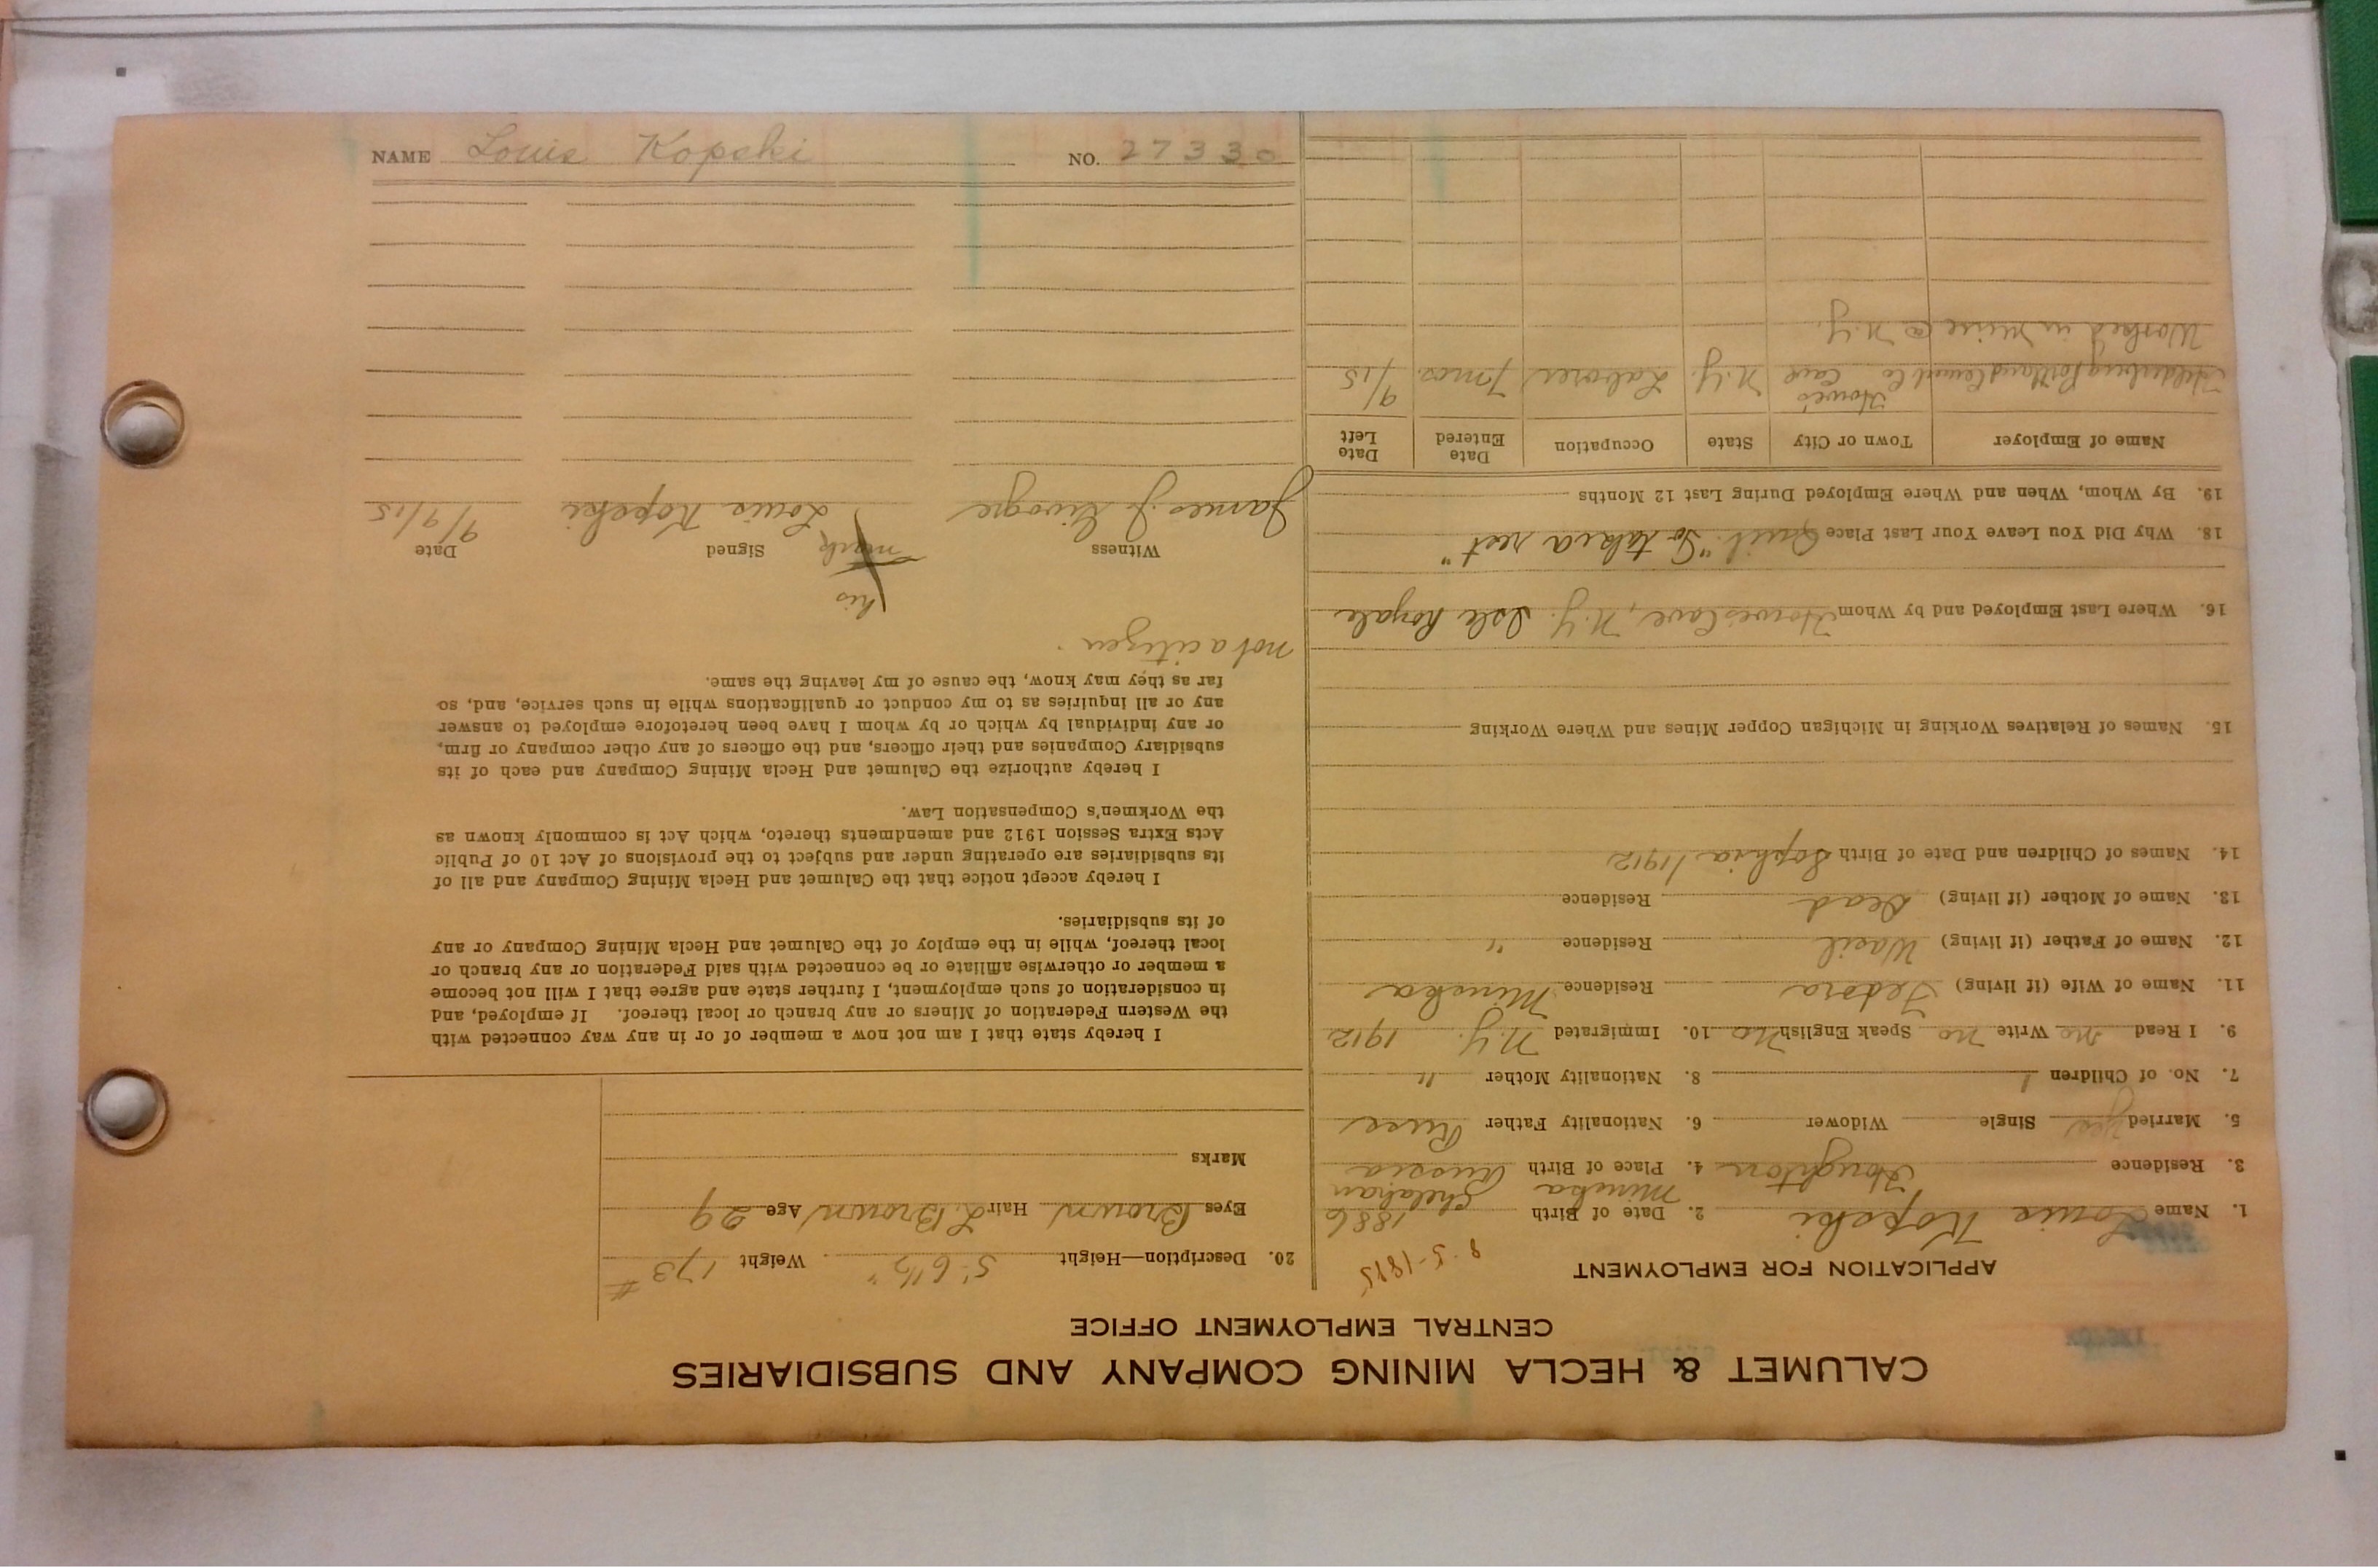 CALUMET & HECLA MINING COMPANY AND SUBSIDIARIES
CENTRAL EMPLOYMENT OFFICE
APPLICATION FOR EMPLOYMENT
1. Name Louis Kopski 2. Date of Birth 1886
Minska
Russia
3. Residence Houghton 4. Place of Birth
5. Married yes Single Widower 6. Nationality Father Russ
7. No. of Children 1 8. Nationality Mother "
9. I Read no Write no Speak English no 10. Immigrated N.Y. 1912
11. Name of Wife (if living) Fedora Residence Minska
12. Name of Father (if living) Wasil Residence "
13. Name of Mother (if living) Dead Residence
14. Names of Children and Date of Birth Sophia / 1912
15. Names of Relatives Working in Michigan Copper Mines and Where Working
16. Where Last Employed and by Whom Howes Cave, N.Y. Isle Royale
18. Why Did You Leave Your Last Place Quit. "To take a rest"
19. By Whom, When and Where Employed During Last 12 Months
Name of Employer Town or City State Occupation Date Entered Date Left
Helderberg Portland Cement Co Howe's Cave N.Y. Laborer 7 mos. 9/15
Worked in Mine @ N.Y.
20. Description—Height 5' 6 1/2" Weight 173 #
Eyes Brown Hair L. Brown Age 29
Marks
I hereby state that I am not now a member of or in any way connected with
the Western Federation of Miners or any branch or local thereof. If employed, and
in consideration of such employment, I further state and agree that I will not become
a member or otherwise affiliate or be connected with said Federation or any branch or
local thereof, while in the employ of the Calumet and Hecla Mining Company or any
of its subsidiaries.
I hereby accept notice that the Calumet and Hecla Mining Company and all of
its subsidiaries are operating under and subject to the provisions of Act 10 of Public
Acts Extra Session 1912 and amendments thereto, which Act is commonly known as
the Workmen's Compensation Law.
I hereby authorize the Calumet and Hecla Mining Company and each of its
subsidiary Companies and their officers, and the officers of any other company or firm,
or any individual by which or by whom I have been heretofore employed to answer
any or all inquiries as to my conduct or qualifications while in such service, and, so
far as they may know, the cause of my leaving the same.
not a citizen.
his
mark
Witness Signed Date
James J. Louis Kopski 9/9/15
NAME Louis Kopski NO. 27330